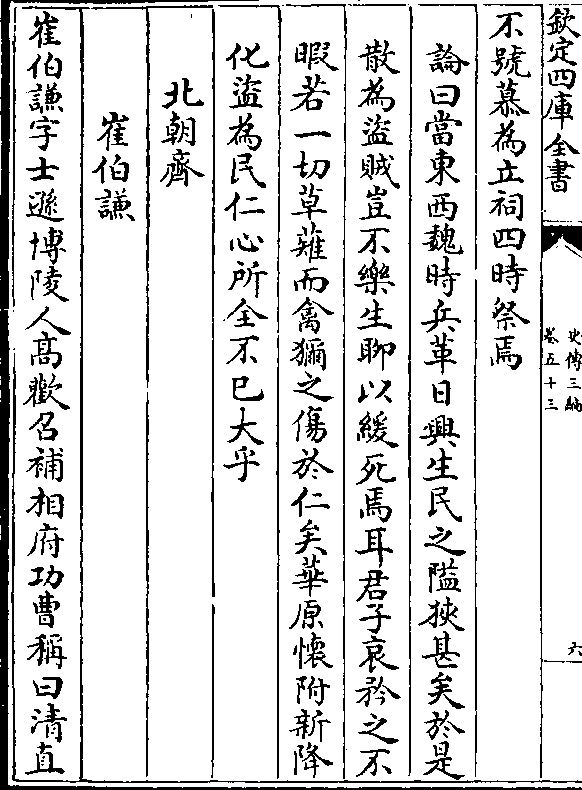 欽定四庫全書
史傳三編
卷五十三
六
不號慕為立祠四時祭焉
論曰當東西魏時兵革日興生民之隘狹甚矣於是
散為盜賊豈不樂生聊以緩死焉耳君子哀矜之不
暇若一切草薙而禽獮之傷於仁矣華原懷附新降
化盜為民仁心所全不已大乎
北朝齊
崔伯謙
崔伯謙字士遜博陵人髙歡召補相府功曹稱曰清直